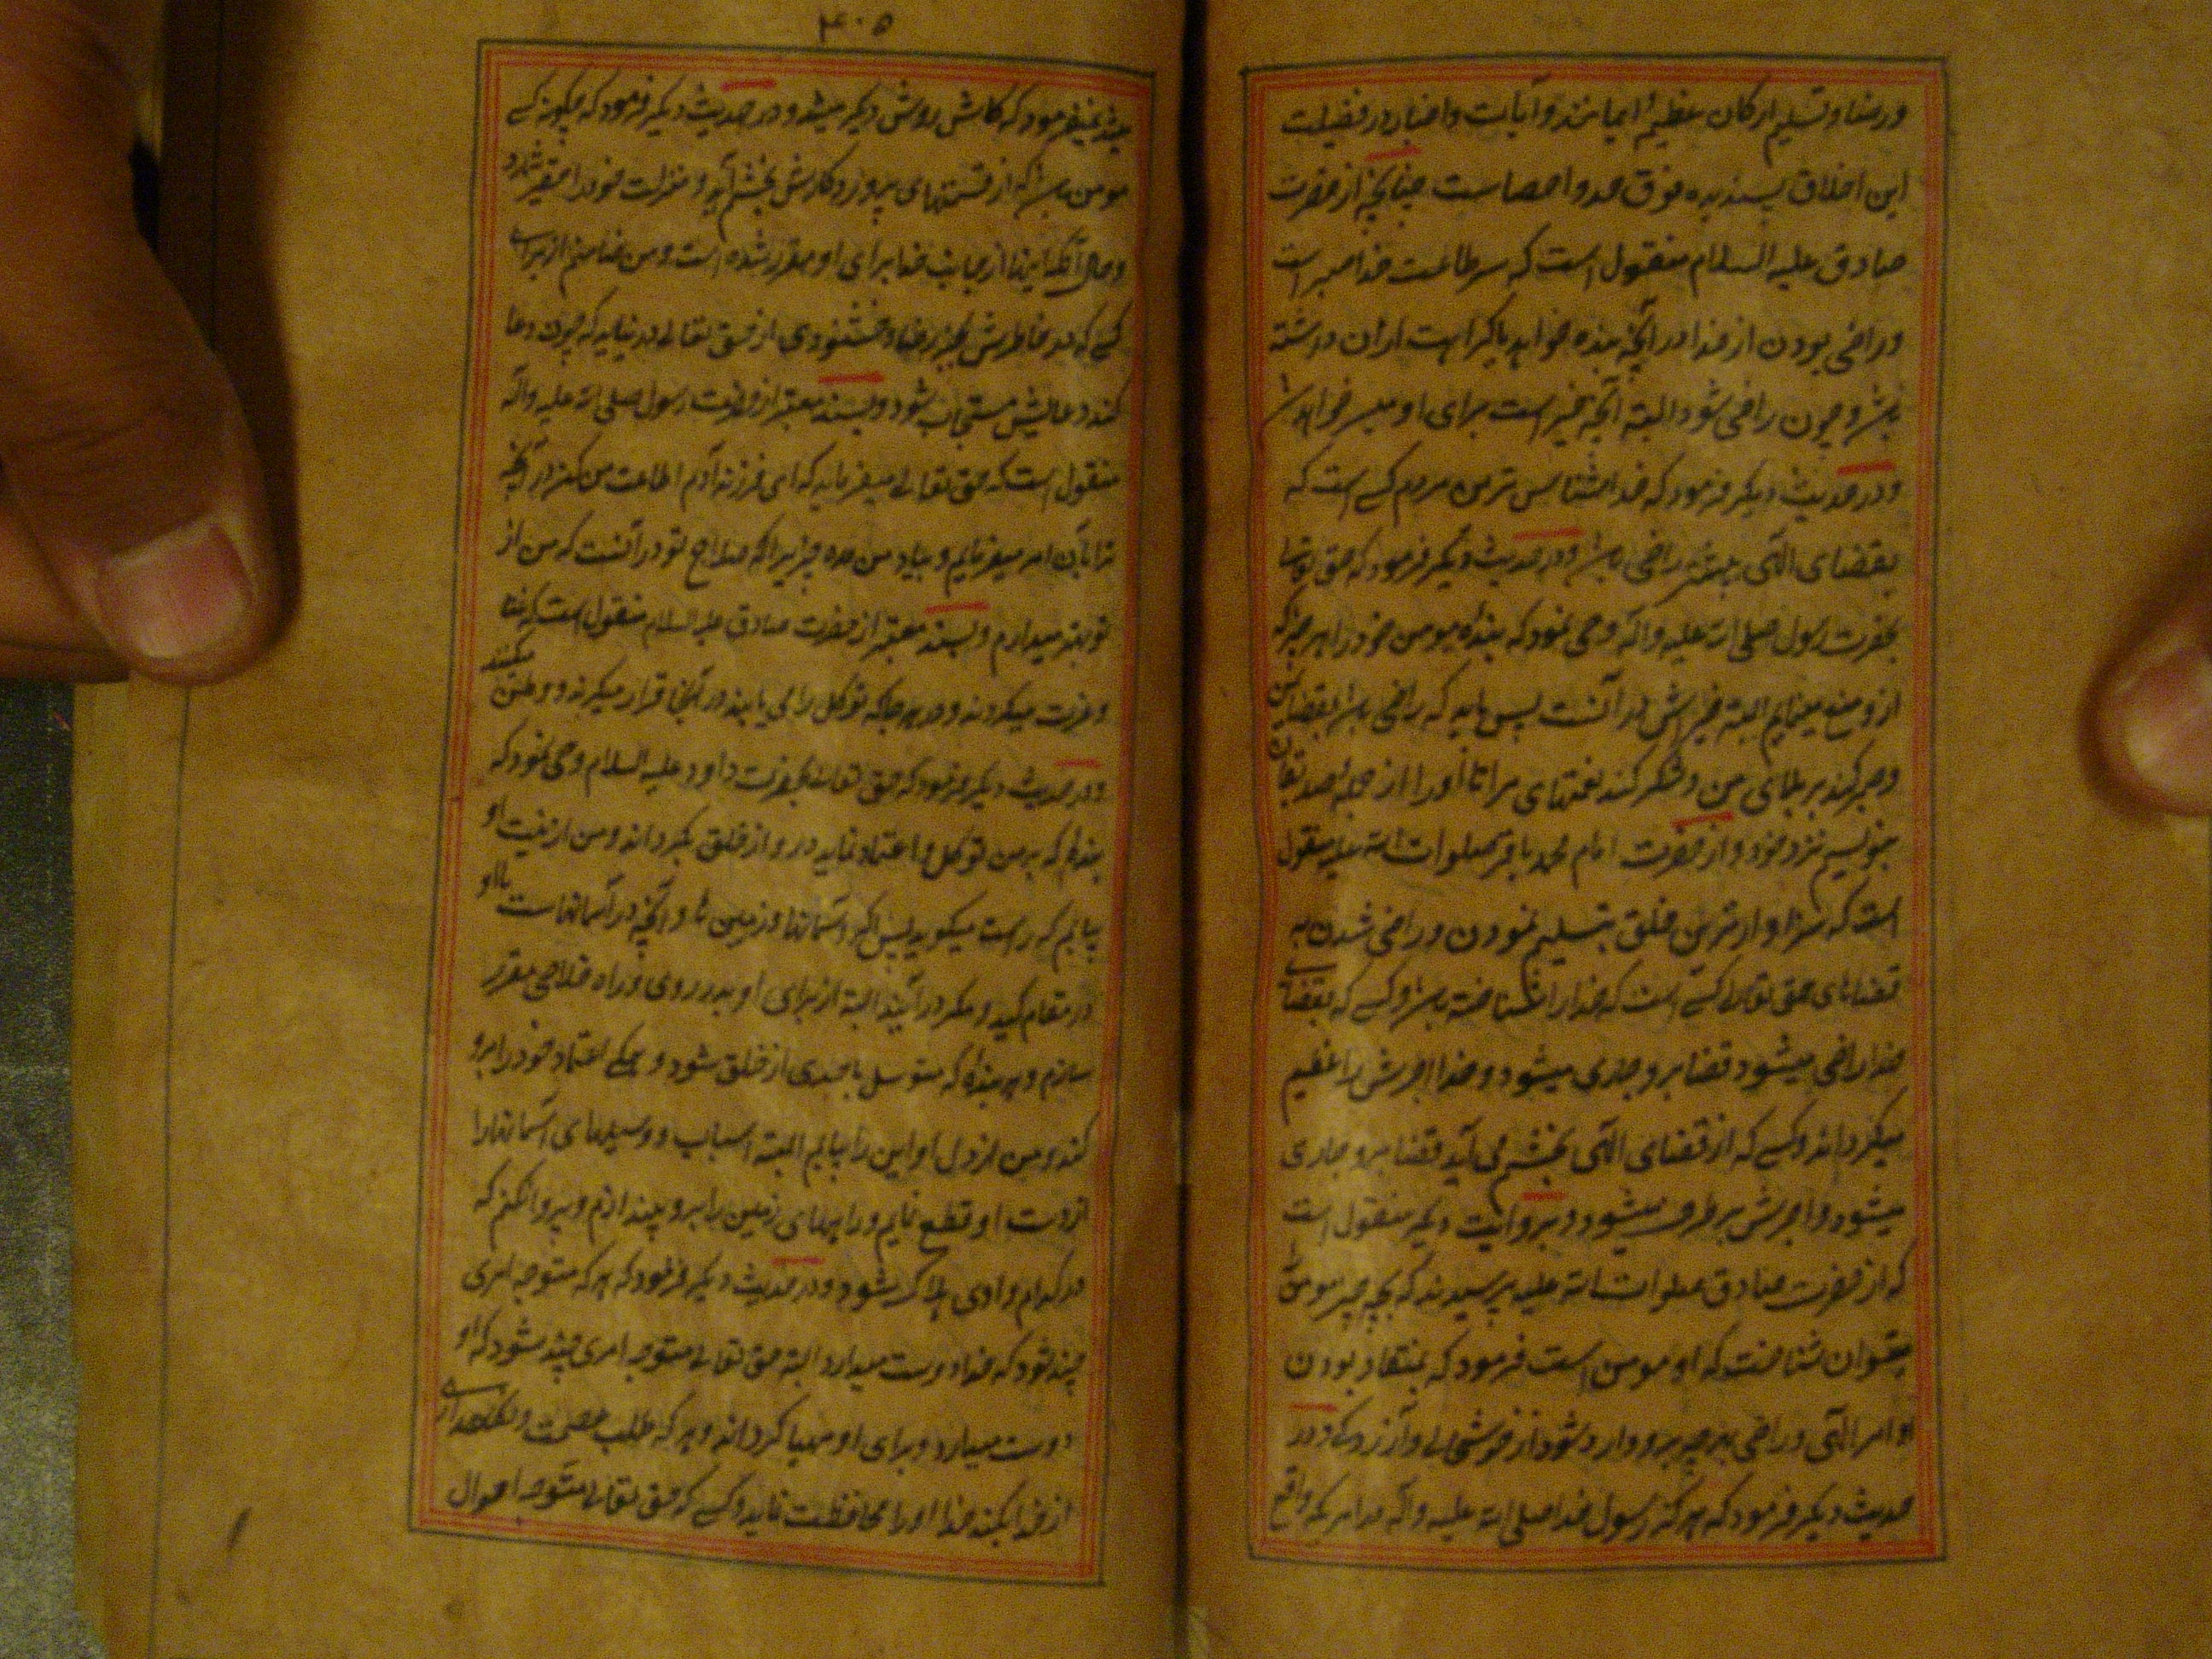 و رضا و تسلیم از ارکان عظیمهٔ ایمانند و آیات و اخبار در فضیلت
این اخلاق پسندیده فوق حد و احصاست چنانچه از حضرت
صادق علیه السلام منقول است که سر طاعت خدا صبر است
و راضی بودن از خدا در آنچه بنده خواهد یا کراهت از آن داشته
باشد و چون راضی شود البته آنچه خیر است برای او میسر خواهد شد
و در حدیث دیگر فرمود که خداشناس ترین مردم کسے است که
بقضای الهی بیشتر راضی باشد و در حدیث دیگر فرمود که حق تعالی
بحضرت رسول صلی الله علیه و آله وحی نمود که بندهٔ مومن خود را بهر چیز که
از و منع مینمایم البته خیرش در آنست پس باید که راضی باشد بقضای من
و صبر کند بر بلای من و شکر کند نعمتهای مرا تا او را از جمله صدیقان
بنویسم نزد خود و از حضرت امام محمد باقر صلوات الله علیه منقول
است که سزاوارترین خلق بتسلیم نمودن و راضی شدن به
قضاهای حق تعالے کسے است که خدا را شناخته باشد و کسے که بقضاے
خدا راضی میشود قضا برو جاری میشود و خدا اجرش را عظیم
میگرداند و کسے که از قضای الهی بخشم می آید قضا برو جاری
میشود و اجرش برطرف میشود و بروایت دیگر منقول است
که از حضرت صادق صلوات الله علیه پرسیدند که بچه چیز مومن را
میتوان شناخت که او مومن است فرمود که بمنقاد بودن
اوامر الهی و راضی بهر چه برو وارد شود از خوشحالی و آزردگی و در
حدیث دیگر فرمود که هرگز رسول خدا صلی الله علیه و آله در امریکه واقع
۴۰۵
میشد نمیفرمود که کاش روش دیگر میشد و در حدیث دیگر فرمود که چگونه کسے
مومن باشد که از قسمتهای پروردگارش بخشم آید و منزلت خود را حقیر شمارد
و حال آنکه اینها از جانب خدا برای او مقرر شده است و من ضامنم از برای
کسے که در خاطرش بجز رضا و خشنودی از حق تعالے در نیاید که چون دعا
کند دعایش مستجاب شود و بسند معتبر از حضرت رسول صلی الله علیه و آله
منقول است که حق تعالے میفرماید که ای فرزند آدم اطاعت من کن در آنچه
ترا بآن امر میفرمایم و بیاد من مده چیزیرا که صلاح تو در آنست که من از
تو بهتر میدانم و بسند معتبر از حضرت صادق علیه السلام منقول است که غنا
و عزت میگردند و در هر جا که توکل را می یابند در آنجا قرار میگیرند و وطن میکنند
و در حدیث دیگر فرمود که حق تعالے بحضرت داود علیه السلام وحی نمود که
بندهٔ که به من توکل و اعتماد نماید و رو از خلق بگرداند و من از نیت او
بیابم که راست میگوید پس اگر آسمانها و زمین ها و آنچه در آسمانهاست با او
در مقام کید و مکر درآیند البته از برای او بدر روی و راه خلاصی مقرر
سازم و هر بندهٔ که متوسل باحدی از خلق شود و همگے اعتماد خود را برو
کند و من از دل او این را بیابم البته اسباب و وسیلهای آسمانها را
از دست او قطع نمایم و راههای زمین را برو ببندازم و پروا نکنم که
در کدام وادی هلاک شود و در حدیث دیگر فرمود که هر که متوجه امری
چند شود که خدا دوست میدارد البته حق تعالے متوجه امری چند شود که او
دوست میدارد و برای او مهیا گرداند و هر که طلب عصمت و نگهداری
از خدا بکند خدا او را محافظت نماید و کسے که حق تعالے متوجه احوال